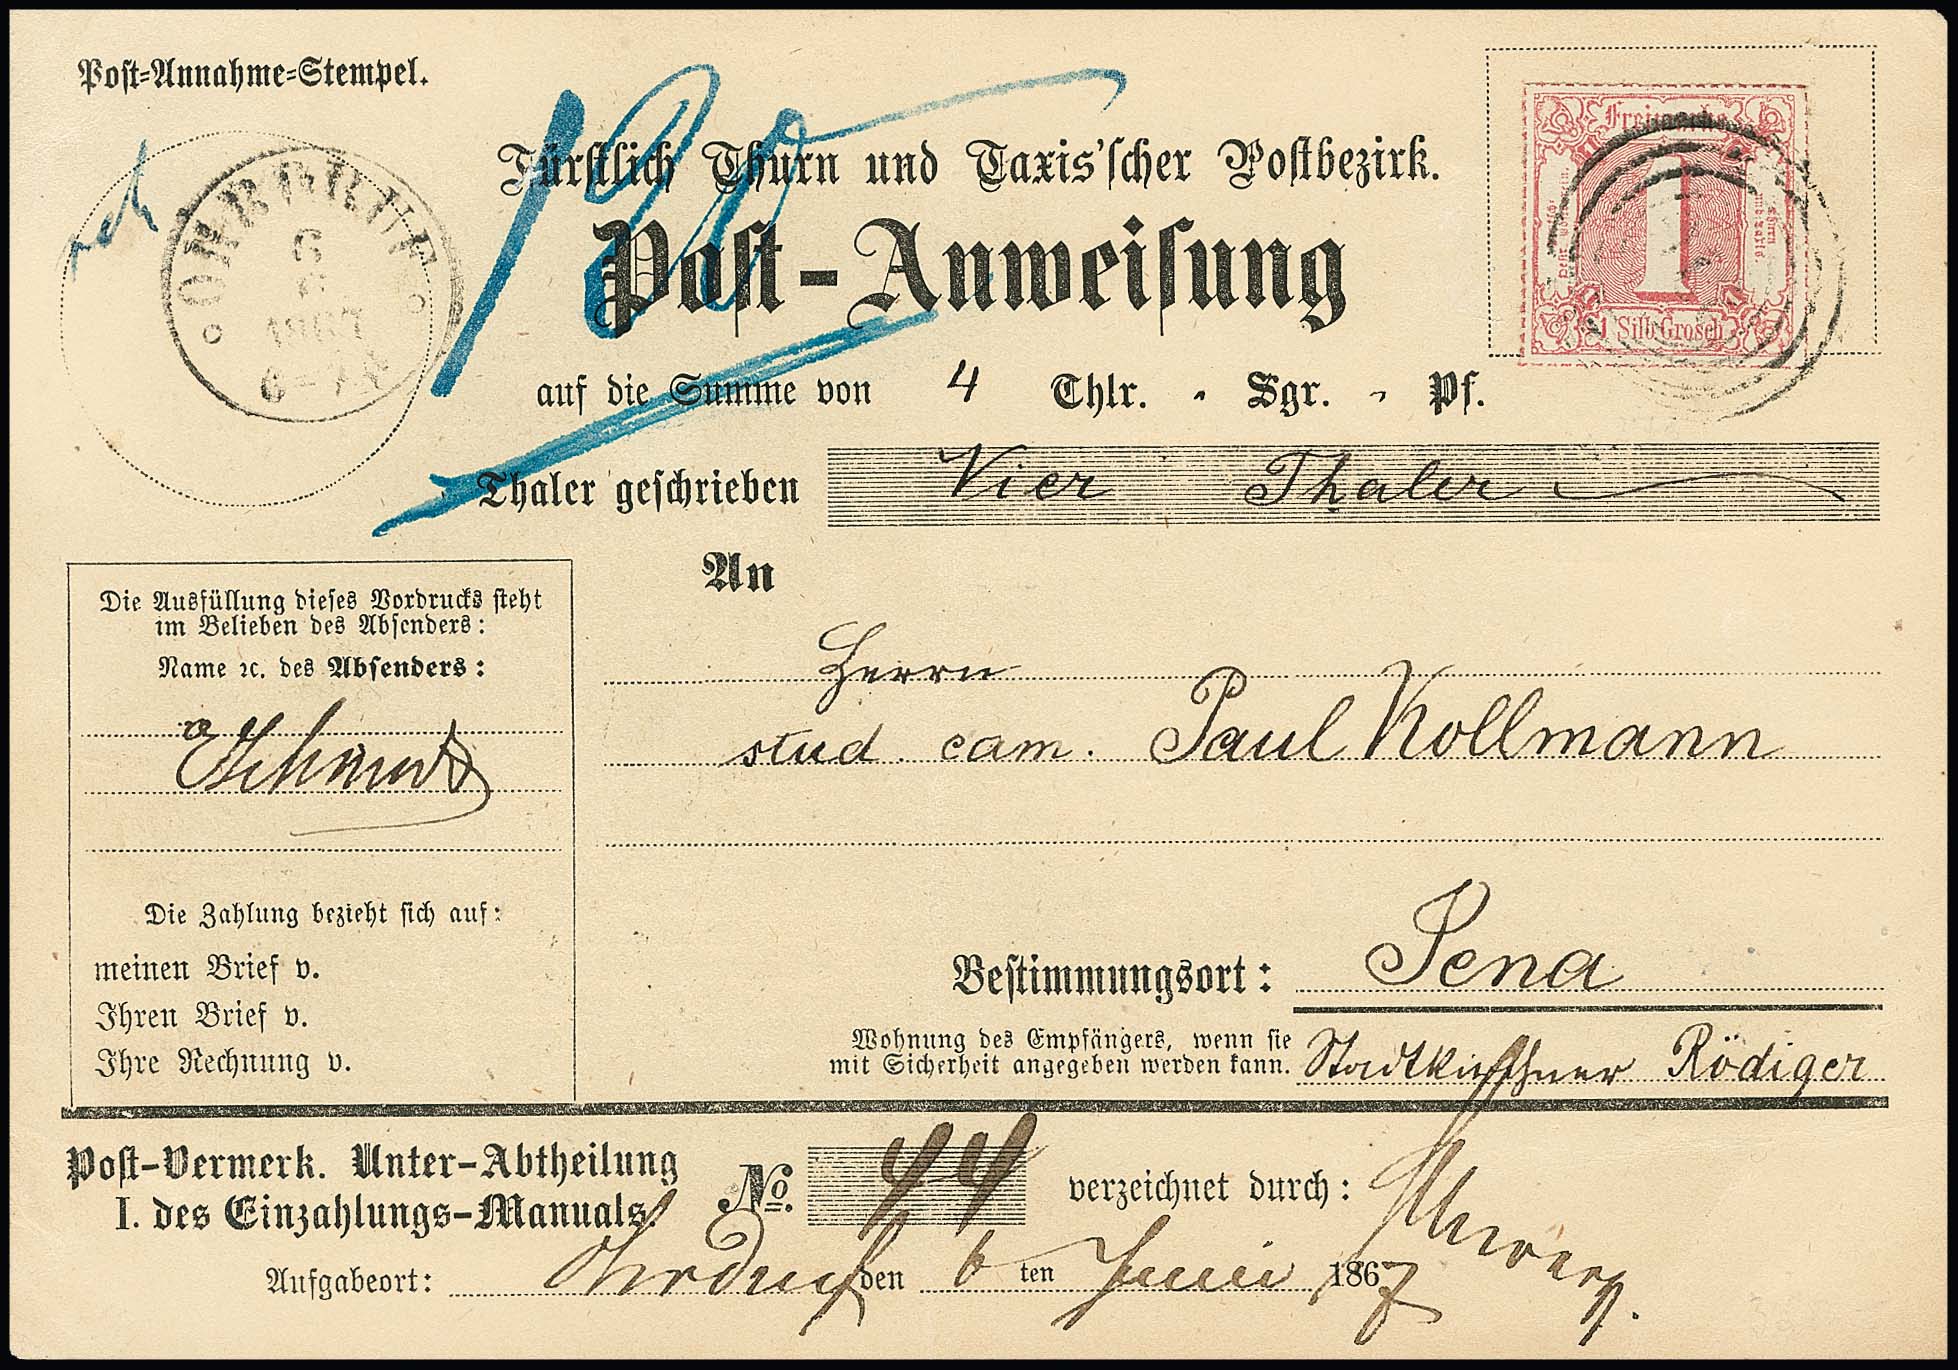 Post-Annahme-Stempel.
OHRDRUF
6
6
1867
6-7
180
Freimarke
1
1 Silb. Grosch.
Fürstlich Thurn und Taxis'scher Postbezirk.
Post-Anweisung
auf die Summe von 4 Thlr. - Sgr. - Pf.
Thaler geschrieben Vier Thaler
An
Herrn
stud. cam. Paul Kollmann
Die Ausfüllung dieses Vordrucks steht
im Belieben des Absenders:
Name ꝛc. des Absenders:
Die Zahlung bezieht sich auf:
meinen Brief v.
Ihren Brief v.
Ihre Rechnung v.
Bestimmungsort: Jena
Wohnung des Empfängers, wenn sie
mit Sicherheit angegeben werden kann.
Stadtkirchner Rödiger
Post-Vermerk. Unter-Abtheilung
I. des Einzahlungs-Manuals.
No. 44 verzeichnet durch:
Aufgabeort: Ohrdruf den 6 ten Juni 1867